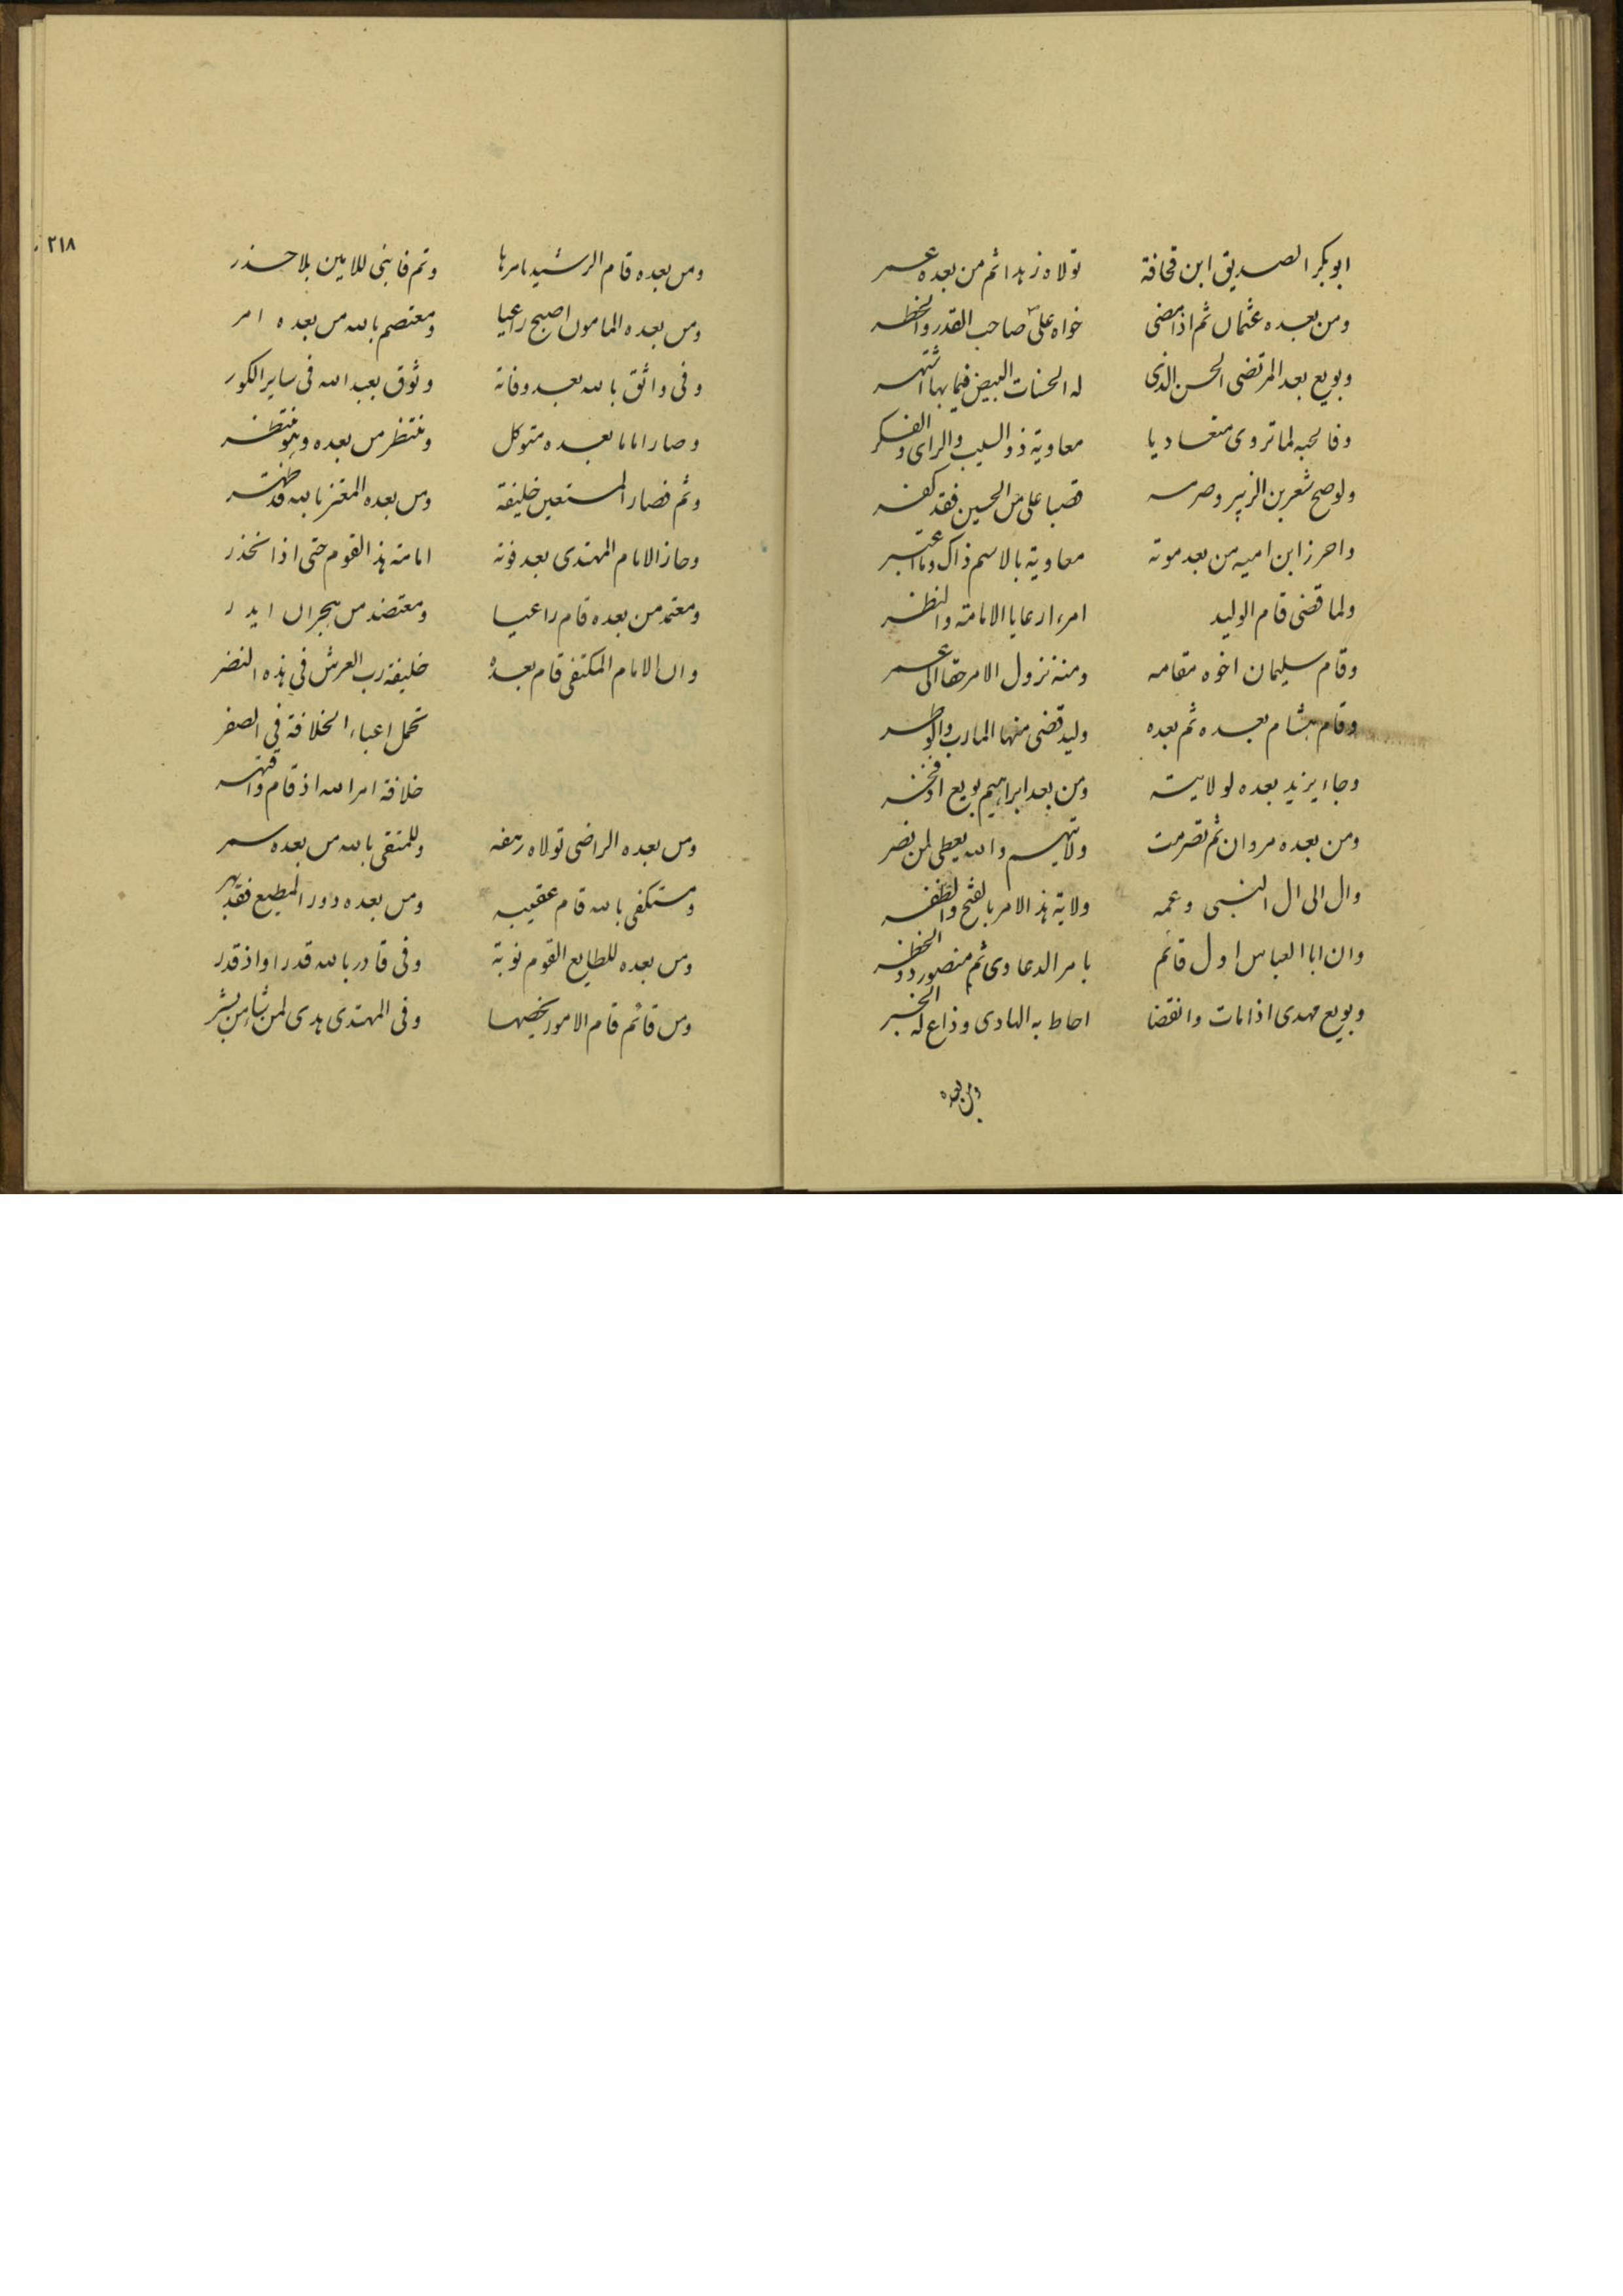 ابوبكر الصديق ابن قحافة تولاه زهدا ثم من بعده عمر
ومن بعده عثمان ثم اذا مضى حواه علي صاحب القدر والخطر
وبويع بعد المرتضى الحسن الذى له الحسنات البيض فيما بها اشتهر
معاوية ذو السيب والراى والفكر
واحرز ابن اميه من بعد موته معاوية بالاسم ذاك وما اعتبر
ولما قضى قام الوليد امر رعايا الامامة والنظر
وقام سليمان اخوه مقامه ومنه نزول الامر حقا الى عمر
وقام هشام بعده ثم بعده وليد قضى منها المارب والوطر
وجاء يزيد بعده لولايته ومن بعد ابراهيم بويع
ومن بعده مروان ثم تصرمت ولايتهم والله يعطى لمن نصر
وال الى ال النبى وعمه ولاية هذ الامر بالفتح والظفر
وان ابا العباس اول قائم بامر الدعاوى ثم منصور ذو الخطر
وبويع مهدى اذا مات وانقضا احاط به الهادى وذاع له الخبر
ومن بعده
٢١٨
ومن بعده قام الرشيد بامرها وتم فابنى للامين بلا حذر
ومن بعده المامون اصبح راعيا ومعتصم بالله من بعده امر
وفى واثق بالله بعد وفاته وثوق بعبد الله فى ساير الكور
وصار اماما بعده متوكل ومنتظر من بعده وهو منتظر
وثم فصار المستعين خليفة ومن بعده المعتز بالله قد ظهر
وحاز الامام المهتدى بعد فوته امامة هذ القوم حتى اذا انحذر
ومعتمد من بعده قام راعيا ومعتضد من
وان الامام المكتفى قام بعده خليفة رب العرش فى هذه النضر
تحمل اعباء الخلافة فى الصغر
خلافة امر الله اذ قام واقتهر
ومن بعده الراضى تولاه وللمتقى بالله من بعده سمر
ومستكفى بالله قام عقيبه ومن بعده دور المطيع فقد بهر
ومن بعده للطايع القوم نوبة وفى قادر بالله قدرا واذ قدر
ومن قائم قام الامور يخصها وفى المهتدى هدى لمن شا من بشر